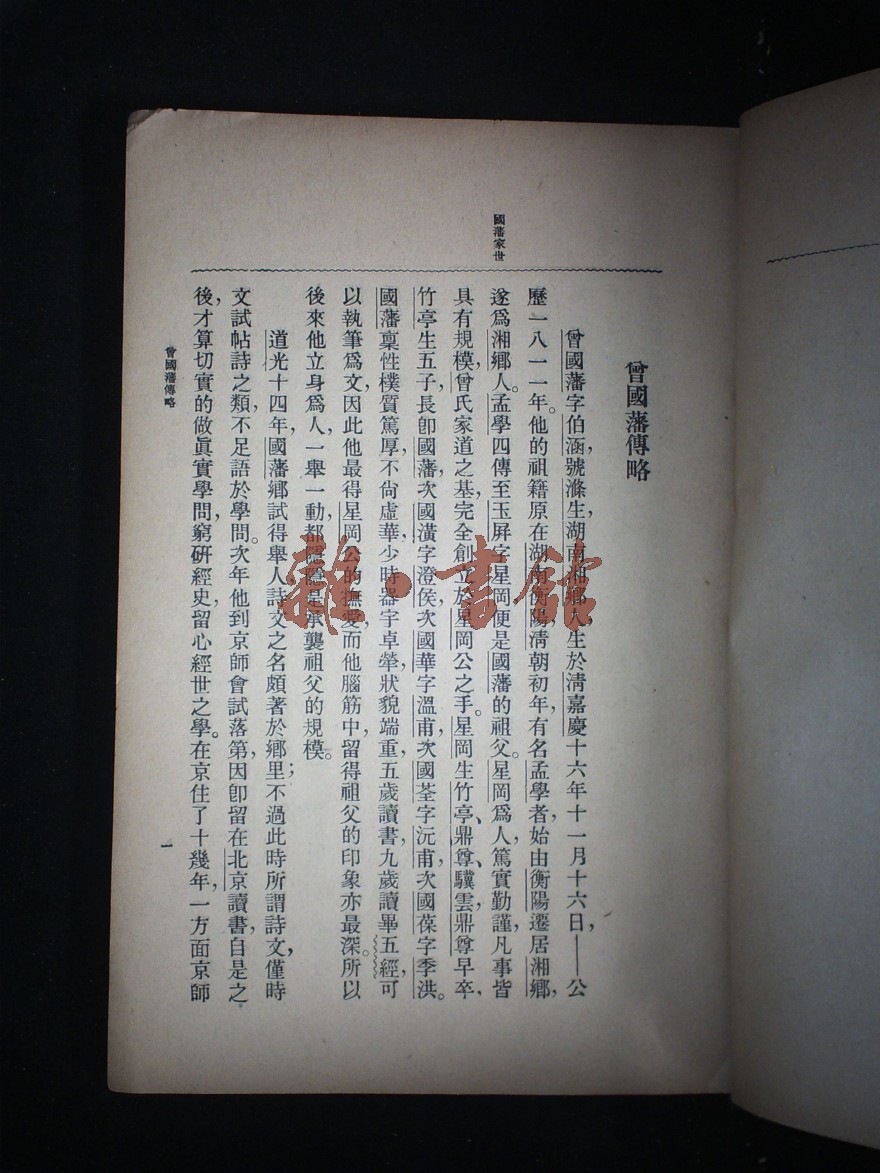 國藩家世
曾國藩傳略
曾國藩字伯涵，號滌生，湖南湘鄉人，生於清嘉慶十六年十一月十六日，——公
歷一八一一年。他的祖籍原在湖南衡陽，清朝初年，有名孟學者，始由衡陽遷居湘鄉，
遂爲湘鄉人。孟學四傳至玉屏字星岡，便是國藩的祖父。星岡爲人篤實勤謹，凡事皆
具有規模，曾氏家道之基，完全創立於星岡公之手。星岡生竹亭、鼎尊、驥雲，鼎尊早卒，
竹亭生五子，長卽國藩，次國潢字澄侯，次國華字溫甫，次國荃字沅甫，次國葆字季洪。
國藩稟性樸質篤厚，不尙虛華，少時器宇卓犖，狀貌端重，五歲讀書，九歲讀畢五經，可
以執筆爲文，因此他最得星岡公的撫愛，而他腦筋中，留得祖父的印象亦最深。所以
後來他立身爲人，一舉一動，都隱隱是承襲祖父的規模。
道光十四年，國藩鄉試得舉人，詩文之名頗著於鄉里；不過此時所謂詩文，僅時
文試帖詩之類，不足語於學問。次年他到京師會試落第，因卽留在北京讀書，自是之
後，才算切實的做眞實學問，窮硏經史，留心經世之學。在京住了十幾年，一方面京師
曾國藩傳略
一
雜·書館